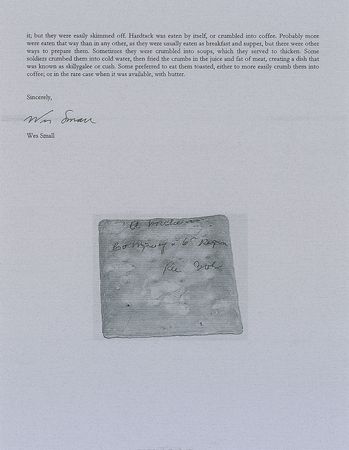 it; but they were easily skimmed off. Hardtack was eaten by itself, or crumbled into coffee. Probably more
were eaten that way than in any other, as they were usually eaten as breakfast and supper, but there were other
ways to prepare them. Sometimes they were crumbled into soups, which they served to thicken. Some
soldiers crumbed them into cold water, then fried the crumbs in the juice and fat of meat, creating a dish that
was known as skillygalee or cush. Some preferred to eat them toasted, either to more easily crumb them into
coffee; or in the rare case when it was available, with butter.
Sincerely,
Wes Small
Wes Small
A
Co